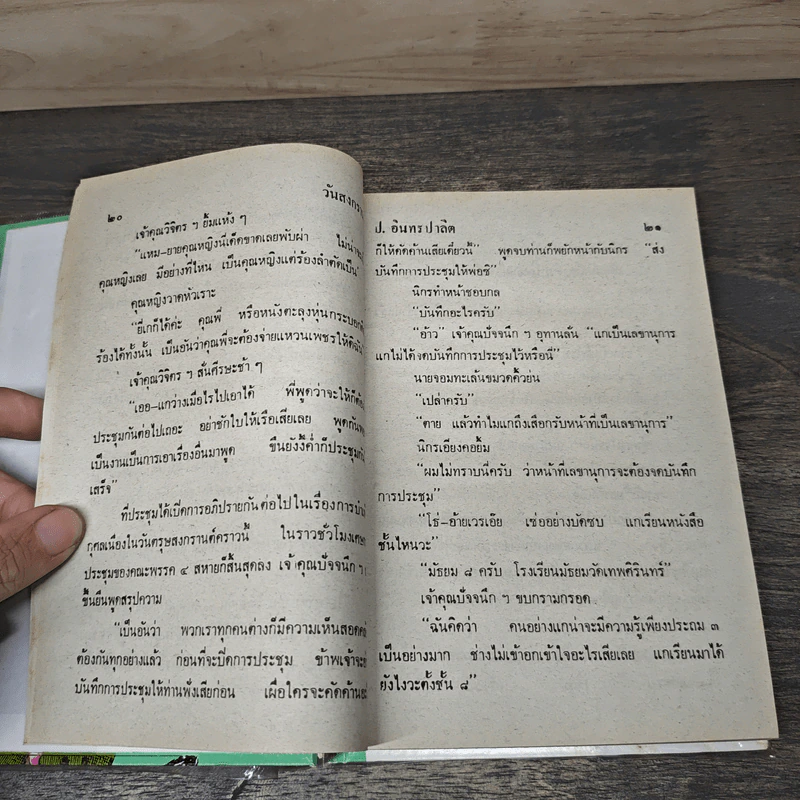 ๒๐
วันสงกรา
เจ้าคุณวิจิตร ฯ ยิ้มแห้ง ๆ
"แหม-ยายคุณหญิงนี่เด็ดขาดเลยพับผ่า ไม่น่าจะ
คุณหญิงเลย มีอย่างที่ไหน เป็นคุณหญิงแต่ร้องลำตัดเป็น"
คุณหญิงวาดหัวเราะ
"ยี่เกก็ได้ค่ะ คุณพี่ หรือหนังตะลุงหุ่นกระบอก
ร้องได้ทั้งนั้น เป็นอันว่าคุณพี่จะต้องจ่ายแหวนเพชรให้
เจ้าคุณวิจิตร ฯ สั่นศีรษะช้า ๆ
"เออ-แกว่างเมื่อไรไปเอาได้ พี่พูดว่าจะให้ก็ต้อง
ประชุมกันต่อไปเถอะ อย่าชักใบให้เรือเสียเลย พูดกัน
เป็นงานเป็นการเอาเรื่องอื่นมาพูด ขืนยังงี้ค่ำก็ประชุม
เสร็จ"
ที่ประชุมได้เปิดการอภิปรายกันต่อไปในเรื่องการบำ
กุศลเนื่องในวันตรุษสงกรานต์คราวนี้ ในราวชั่วโมงเศษ
ประชุมของคณะพรรค ๔ สหายก็สิ้นสุดลง เจ้าคุณปัจจนึก ฯ
ขึ้นยืนพูดสรุปความ
"เป็นอันว่า พวกเราทุกคนต่างก็มีความเห็นสอดคล้
ต้องกันทุกอย่างแล้ว ก่อนที่จะปิดการประชุม ข้าพเจ้าจะ
บันทึกการประชุมให้ท่านฟังเสียก่อน เผื่อใครจะคัดค้าน
ป. อินทรปาลิต
๒๑
ก็ให้คัดค้านเสียเดี๋ยวนี้" พูดจบท่านก็พยักหน้ากับนิกร "ส่ง
บันทึกการประชุมให้พ่อซิ"
นิกรทำหน้าชอบกล
"บันทึกอะไรครับ"
"อ้าว" เจ้าคุณปัจจนึก ฯ อุทานลั่น "แกเป็นเลขานุการ
แกไม่ได้จดบันทึกการประชุมไว้หรือนี่"
นายจอมทะเล้นขมวดคิ้วย่น
"เปล่าครับ"
"ตาย แล้วทำไมแกถึงเสือกรับหน้าที่เป็นเลขานุการ"
นิกรเอียงคอยิ้ม
"ผมไม่ทราบนี่ครับ ว่าหน้าที่เลขานุการจะต้องจดบันทึก
การประชุม"
"โธ่-อ้ายเวรเอ๊ย เซ่ออย่างบัดซบ แกเรียนหนังสือ
ชั้นไหนวะ"
"มัธยม ๘ ครับ โรงเรียนมัธยมวัดเทพศิรินทร์"
เจ้าคุณปัจจนึก ฯ ขบกรามกรอด
"ฉันคิดว่า คนอย่างแกน่าจะมีความรู้เพียงประถม ๓
เป็นอย่างมาก ช่างไม่เข้าอกเข้าใจอะไรเสียเลย แกเรียนมาได้
ยังไงวะตั้งชั้น ๘"